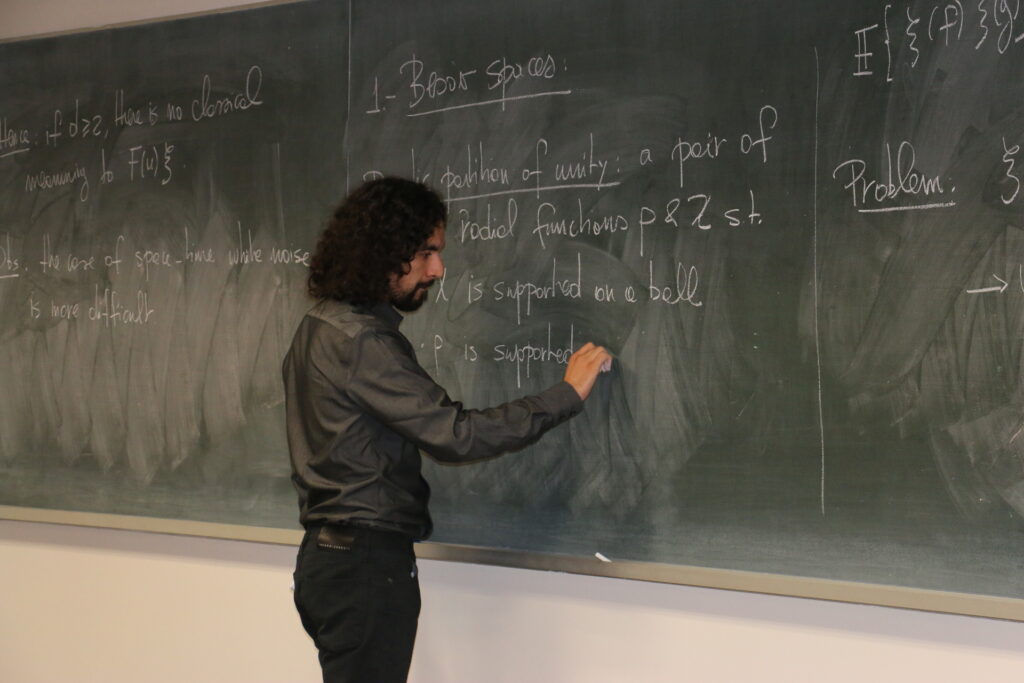 Hence: if d≥2, there is no classical
meaning to F(u)ξ.
Obs: the case of space-time white noise
is more difficult.
1.- Besov spaces:
partition of unity: a pair of
radial functions ρ & χ st.
χ is supported on a ball
· ρ is supported
𝔼{ξ(f)ξ(g)
Problem: ξ
→